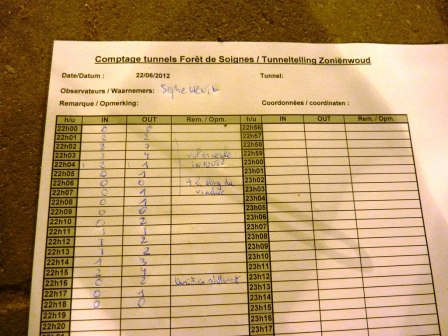 Comptage tunnels Forêt de Soignes / Tunneltelling Zoniënwoud
Date/Datum : 22/06/2012 Tunnel:
Observateurs / Waarnemers:
Remarque / Opmerking: Coordonnées / coordinaten :
h/u IN OUT Rem. / Opm. h/u IN OUT Rem. / Opm.
22h00 22h56
22h01 2 2 22h57
22h02 3 7 22h58
22h03 3 4 22h59
22h04 2 1 23h00
22h05 0 1 23h01
22h06 0 0 23h02
22h07 0 1 23h03
22h08 0 1 23h04
22h09 0 0 23h05
22h10 0 2 23h06
22h11 1 1 23h07
22h12 1 2 23h08
22h13 1 2 23h09
22h14 3 23h10
22h15 2 4 23h11
22h16 0 2 23h12
22h17 0 1 23h13
22h18 0 0 23h14
22h19 23h15
22h20 23h16
23h17